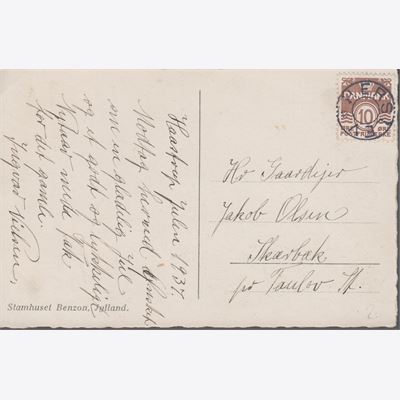 Haastrup julen 1937.
Modtag herved Ønsket
om en glædelig jul
og et godt og lykkeligt
Nytaar med Tak
for det gamle.
Ingvar Nilsen.
Stamhuset Benzon, Jylland.
DANMARK
10
Hr Gaardejer
Jakob Olsen
Skærbæk
pr Taulov St.